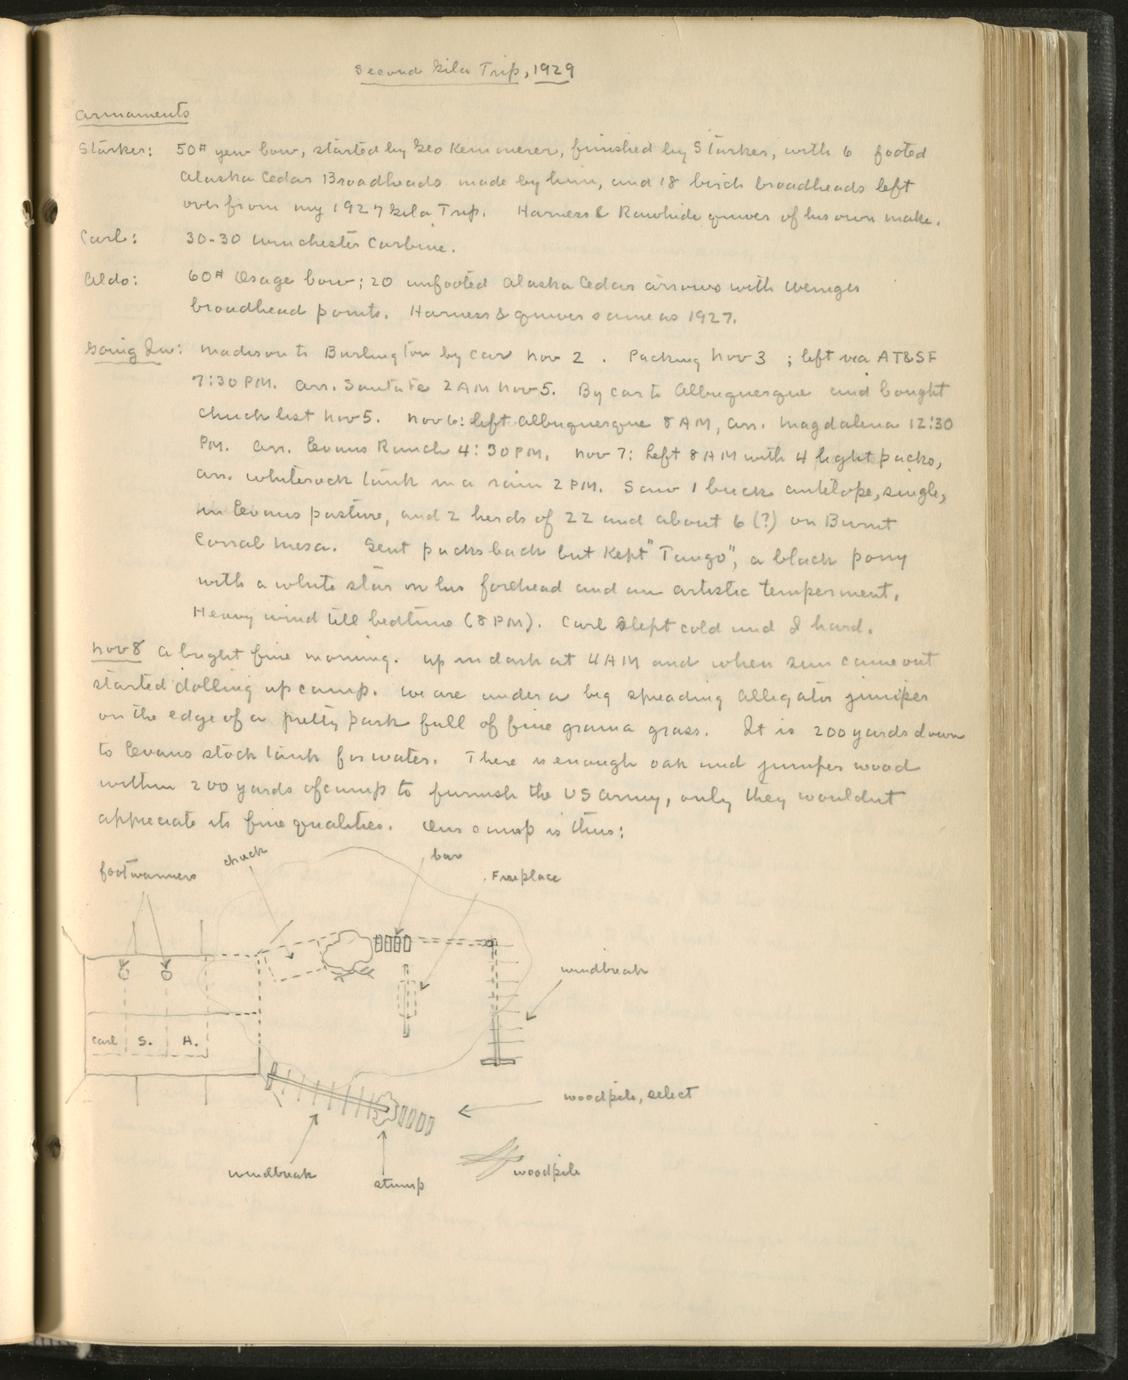 Second Gila Trip, 1929
Armaments
Starker: 50# yew bow, started by Geo Kemmerer, finished by Starker, with 6 footed
Alaska Cedar Broadheads made by him, and 18 birch broadheads left
over from my 1927 Gila Trip. Harness & Rawhide quiver of his own make.
Carl: 30-30 Winchester Carbine.
Aldo: 60# Osage bow; 20 unfooted Alaska Cedar arrows with
broadhead points. Harness & quiver same as 1927.
Going In: Madison to Burlington by car Nov 2. Packing Nov 3; left via AT&SF
7:30 PM. arr. Santa Fe 2 AM Nov 5. By car to Albuquerque and bought
chuck list Nov 5. Nov 6: left Albuquerque 8 AM, arr. Magdalena 12:30
PM. arr. Evans Ranch 4:30 PM. Nov 7: Left 8 AM with 4 light packs,
arr. Whiterock tank in a rain 2 PM. Saw 1 buck antelope, single,
in Evans pasture, and 2 herds of 22 and about 6 (?) on Burnt
Corral Mesa. Sent packs back but kept "Tango", a black pony
with a white star on his forehead and an artistic temperment.
Heavy wind till bedtime (8 PM). Carl slept cold and I hard.
Nov 8 A bright fine morning. Up in dark at 4 AM and when sun came out
started dolling up camp. We are under a big spreading alligator juniper
on the edge of a pretty park full of fine grama grass. It is 200 yards down
to Evans stock tank for water. There is enough oak and juniper wood
within 200 yards of camp to furnish the US Army, only they wouldnt
appreciate its fine qualities. Our camp is thus:
footwarmers
chuck
bar
Fireplace
windbreak
Carl S. A.
woodpile, select
windbreak
stump
woodpile